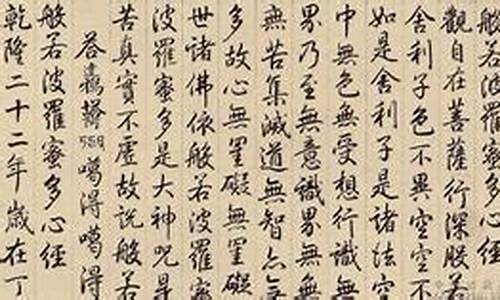 般若波羅蜜多心經
觀自在菩薩行深般若
舍利子色不異空空不
如是舍利子是諸法空
中無色無受想行識無
界乃至無意識界無無
無苦集滅道無智亦無
多故心無罣礙無罣礙
世諸佛依般若波羅蜜
波羅蜜多是大神咒是
苦真實不虛故說般若
噶得噶得
般若波羅蜜多心經
乾隆二十二年歲在丁